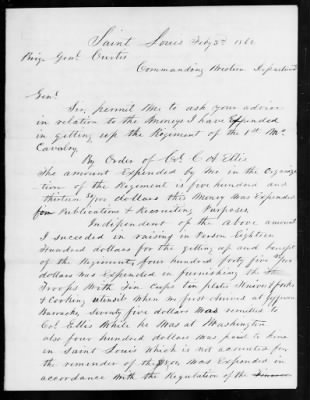 Saint Louis Feby 3rd 1862
Brig Genl Curtis
Commanding Western Department
Genl
Sir, permit me to ask your advice
in relation to the Moneys I have Expended
in getting up the Regiment of the 1st Mo
Cavalry
By Order of Col C A Ellis
The amount Expended by me in the Organiza
tion of the Regiment is five hundred and
thirteen dollars this Money was Expended
for Publications & Recruiting Purposes
Independent of the above amount
I succeded in raising in Person Eighteen
Hundred dollars for the getting up and benefit
of the Regiment, four hundred forty five
dollars was Expended in furnishing the
Troops With Tin Cups tin plates Knives & forks
& Cooking utensils When we first arrived at Jefferson
Barracks, Seventy five dollars was remited to
Col Ellis While he Was at Washington
also four hundred dollars was paid to him
in Saint Louis Which is not accounted for
the remainder of the was Expended in
accordance With the Regulation of the